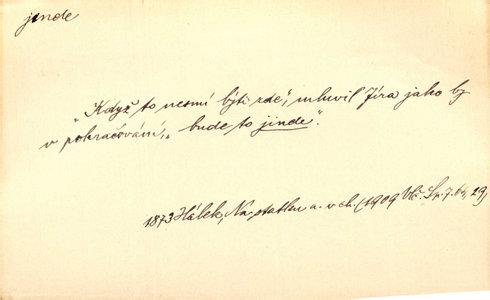 jinde
„Když to nesmí býti zde", mluvil Jíra jako by
v pokračování, „bude to jinde".
1873 Hálek, Na statku a v ch. (1909